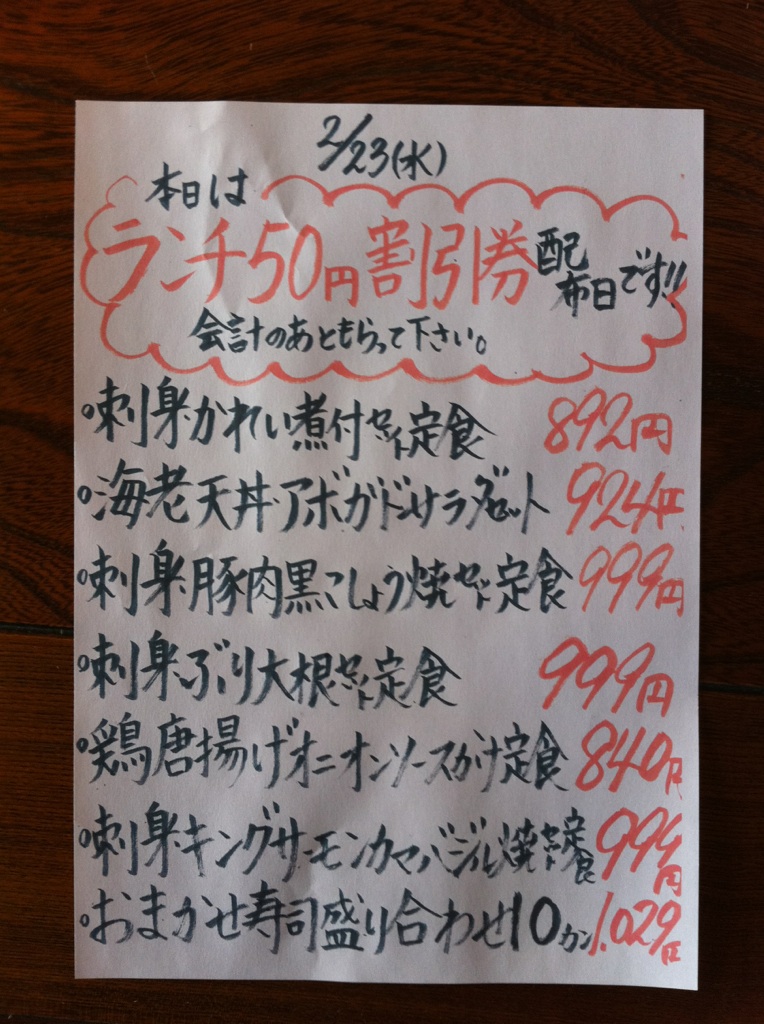 2/23(水)
本日は
ランチ50円割引券配布日です!!
会計のあともらって下さい。
○刺身・かれい煮付セット定食 892円
○海老天丼・アボガドサラダセット 924円
○刺身・豚肉黒こしょう焼セット定食 999円
○刺身・ぶり大根セット定食 999円
○鶏唐揚げオニオンソースかけ定食 840円
○刺身・キングサーモンカマバジル焼セット定食 999円
○おまかせ寿司盛り合わせ10カン 1.029円